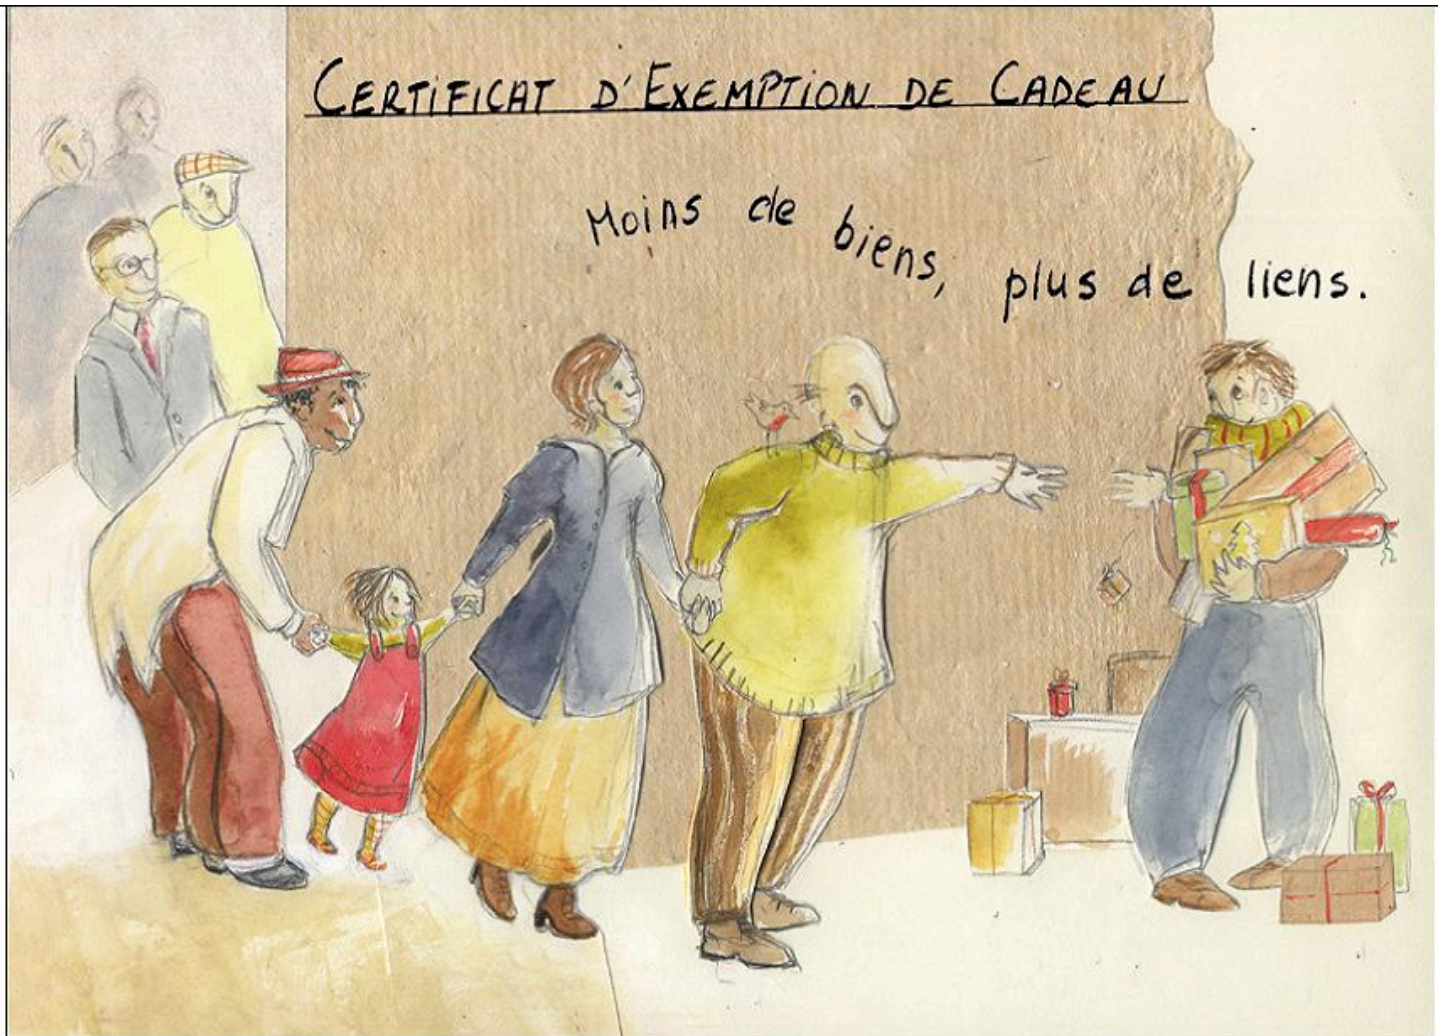 CERTIFICAT D'EXEMPTION DE CADEAU
Moins de biens, plus de liens.